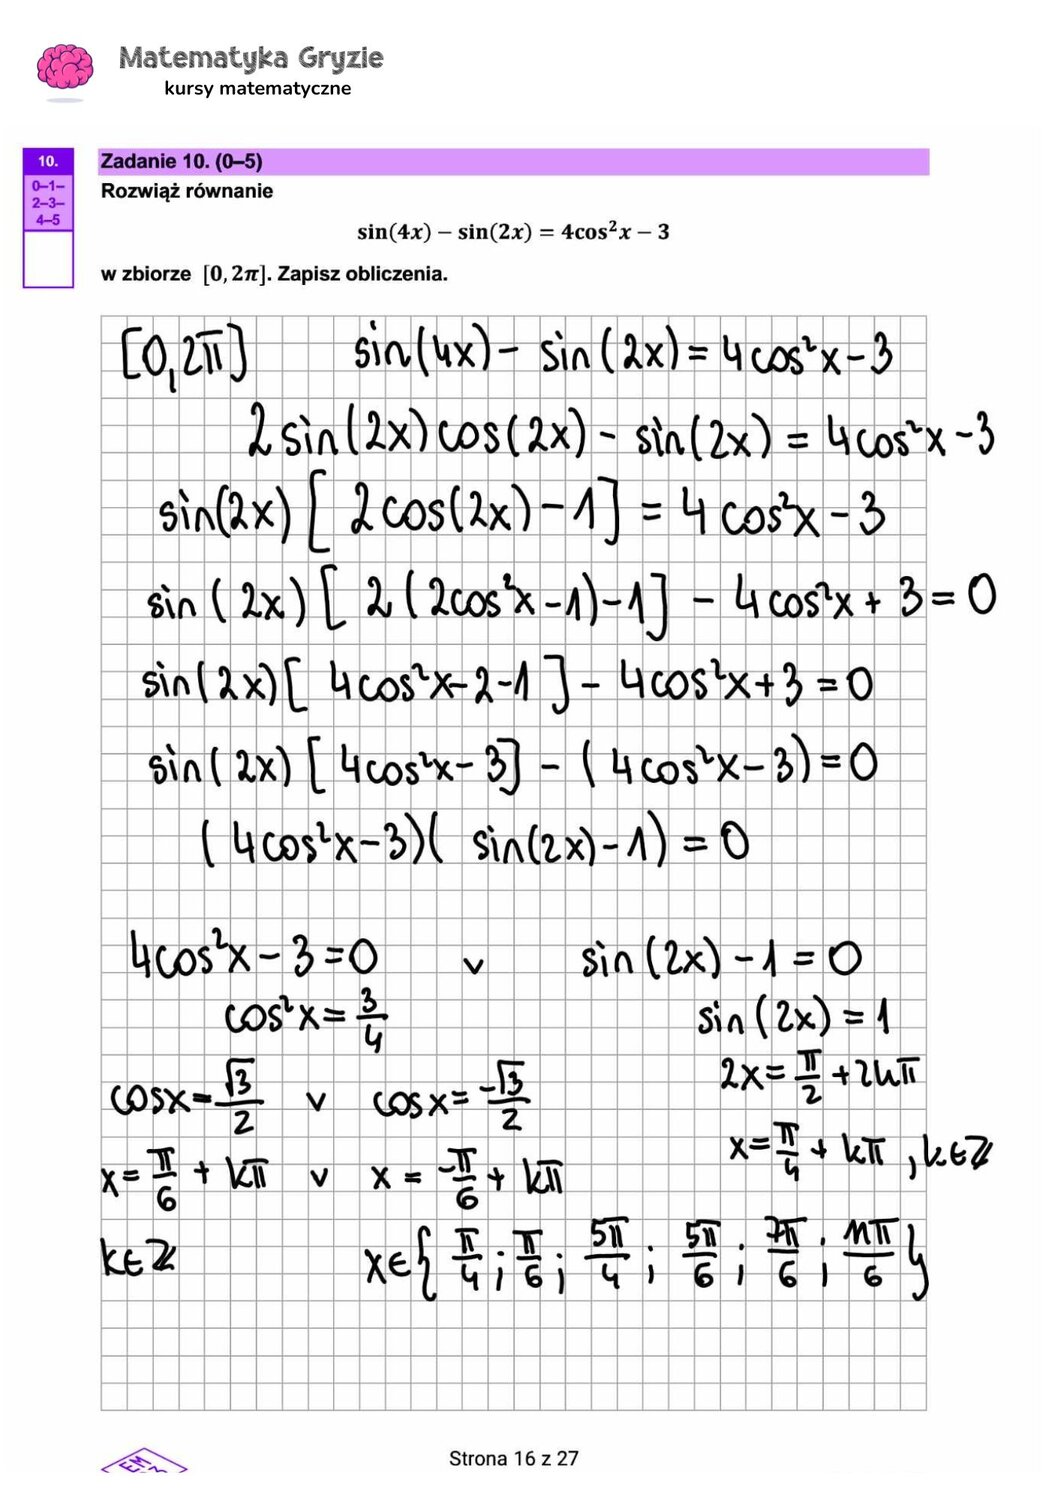 Matematyka Gryzie
kursy matematyczne
10.
0–1–
2–3–
4–5
Zadanie 10. (0–5)
Rozwiąż równanie
sin(4x) − sin(2x) = 4cos²x − 3
w zbiorze [0, 2π]. Zapisz obliczenia.
[0,2π] sin(4x) - sin(2x) = 4cos²x - 3
2sin(2x)cos(2x) - sin(2x) = 4cos²x - 3
sin(2x)[2cos(2x) - 1] = 4cos²x - 3
sin(2x)[2(2cos²x - 1) - 1] - 4cos²x + 3 = 0
sin(2x)[4cos²x - 2 - 1] - 4cos²x + 3 = 0
sin(2x)[4cos²x - 3] - (4cos²x - 3) = 0
(4cos²x - 3)(sin(2x) - 1) = 0
4cos²x - 3 = 0 v sin(2x) - 1 = 0
cos²x = 3/4 sin(2x) = 1
cosx = √3/2 v cosx = -√3/2 2x = π/2 + 2kπ
x = π/6 + kπ v x = -π/6 + kπ x = π/4 + kπ, k∈ℤ
k∈ℤ x∈{π/4; π/6; 5π/4; 5π/6; 7π/6; 11π/6}
Strona 16 z 27